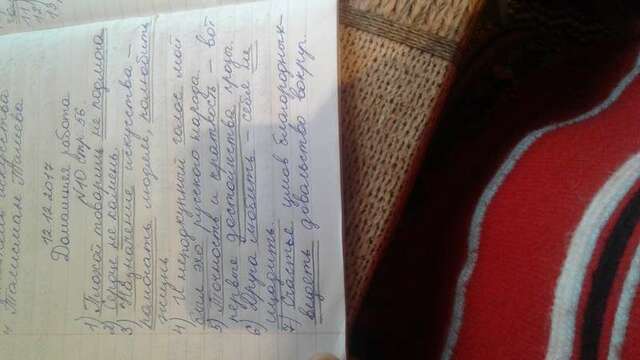 искусства
Талисман Толеева
12.12.2017
Домашняя работа
№10 стр 56.
1) Плохой товарищ не подмога
2) Сердце не камень
3) Назначение искусства –
помогать людям, полюбить
жизнь
4) И неподкупный голос мой
был эхо русского народа
5) Точность и краткость – вот
первые достоинства прозы
6) Друга любить – себя не
щадить
7) Счастье умов благороднык
видеть довольство вокруг.